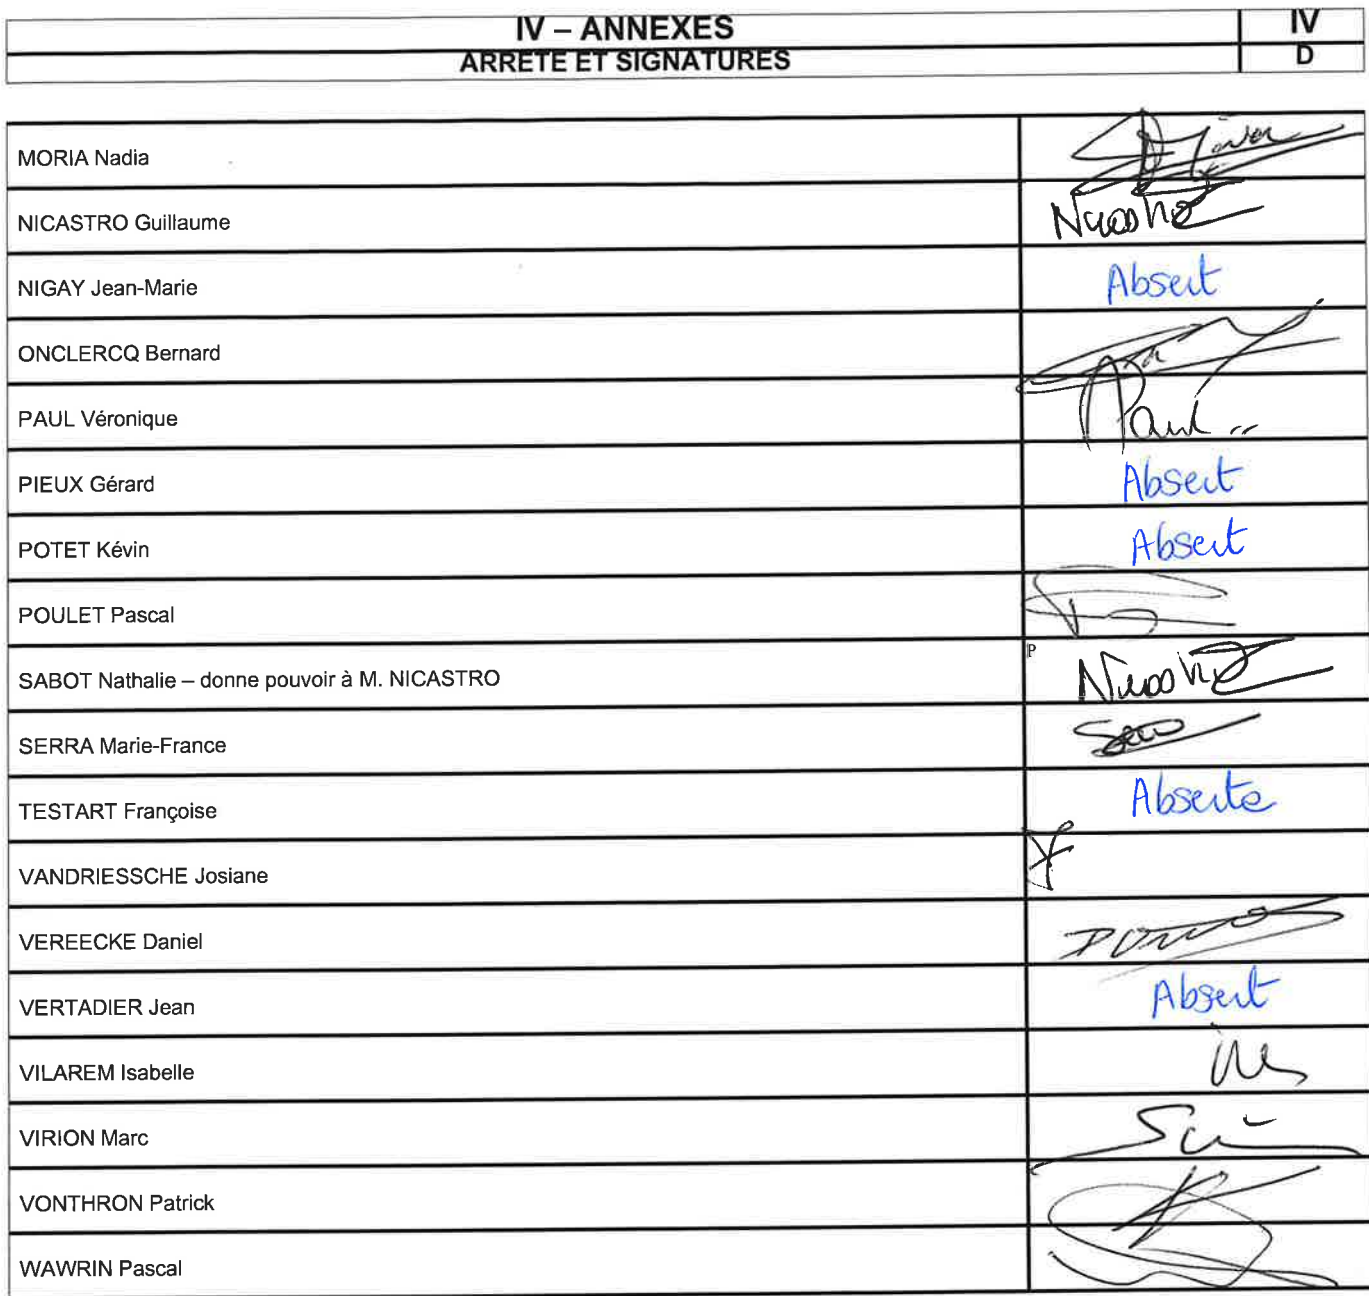 IV – ANNEXES IV
ARRETE ET SIGNATURES D
MORIA Nadia
NICASTRO Guillaume Nicastro
NIGAY Jean-Marie Absent
ONCLERCQ Bernard
PAUL Véronique Paul
PIEUX Gérard Absent
POTET Kévin Absent
POULET Pascal
P
SABOT Nathalie – donne pouvoir à M. NICASTRO Nicastro
SERRA Marie-France
TESTART Françoise Absente
VANDRIESSCHE Josiane
VEREECKE Daniel
VERTADIER Jean Absent
VILAREM Isabelle
VIRION Marc
VONTHRON Patrick
WAWRIN Pascal